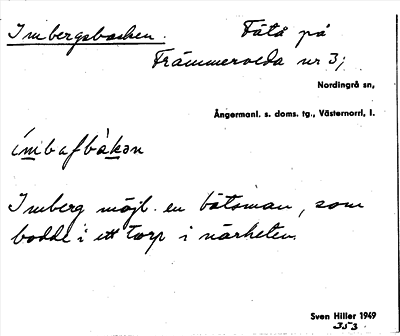 Imbergsbacken. Fäbå på
Främmerveda nr 3;
Nordingrå sn,
Ångermanl. s. doms. tg., Västernorrl, l.
ímbafbàkan
Imberg möjl. en båtsman, som
bodde i ett torp i närheten.
Sven Hiller 1949
353